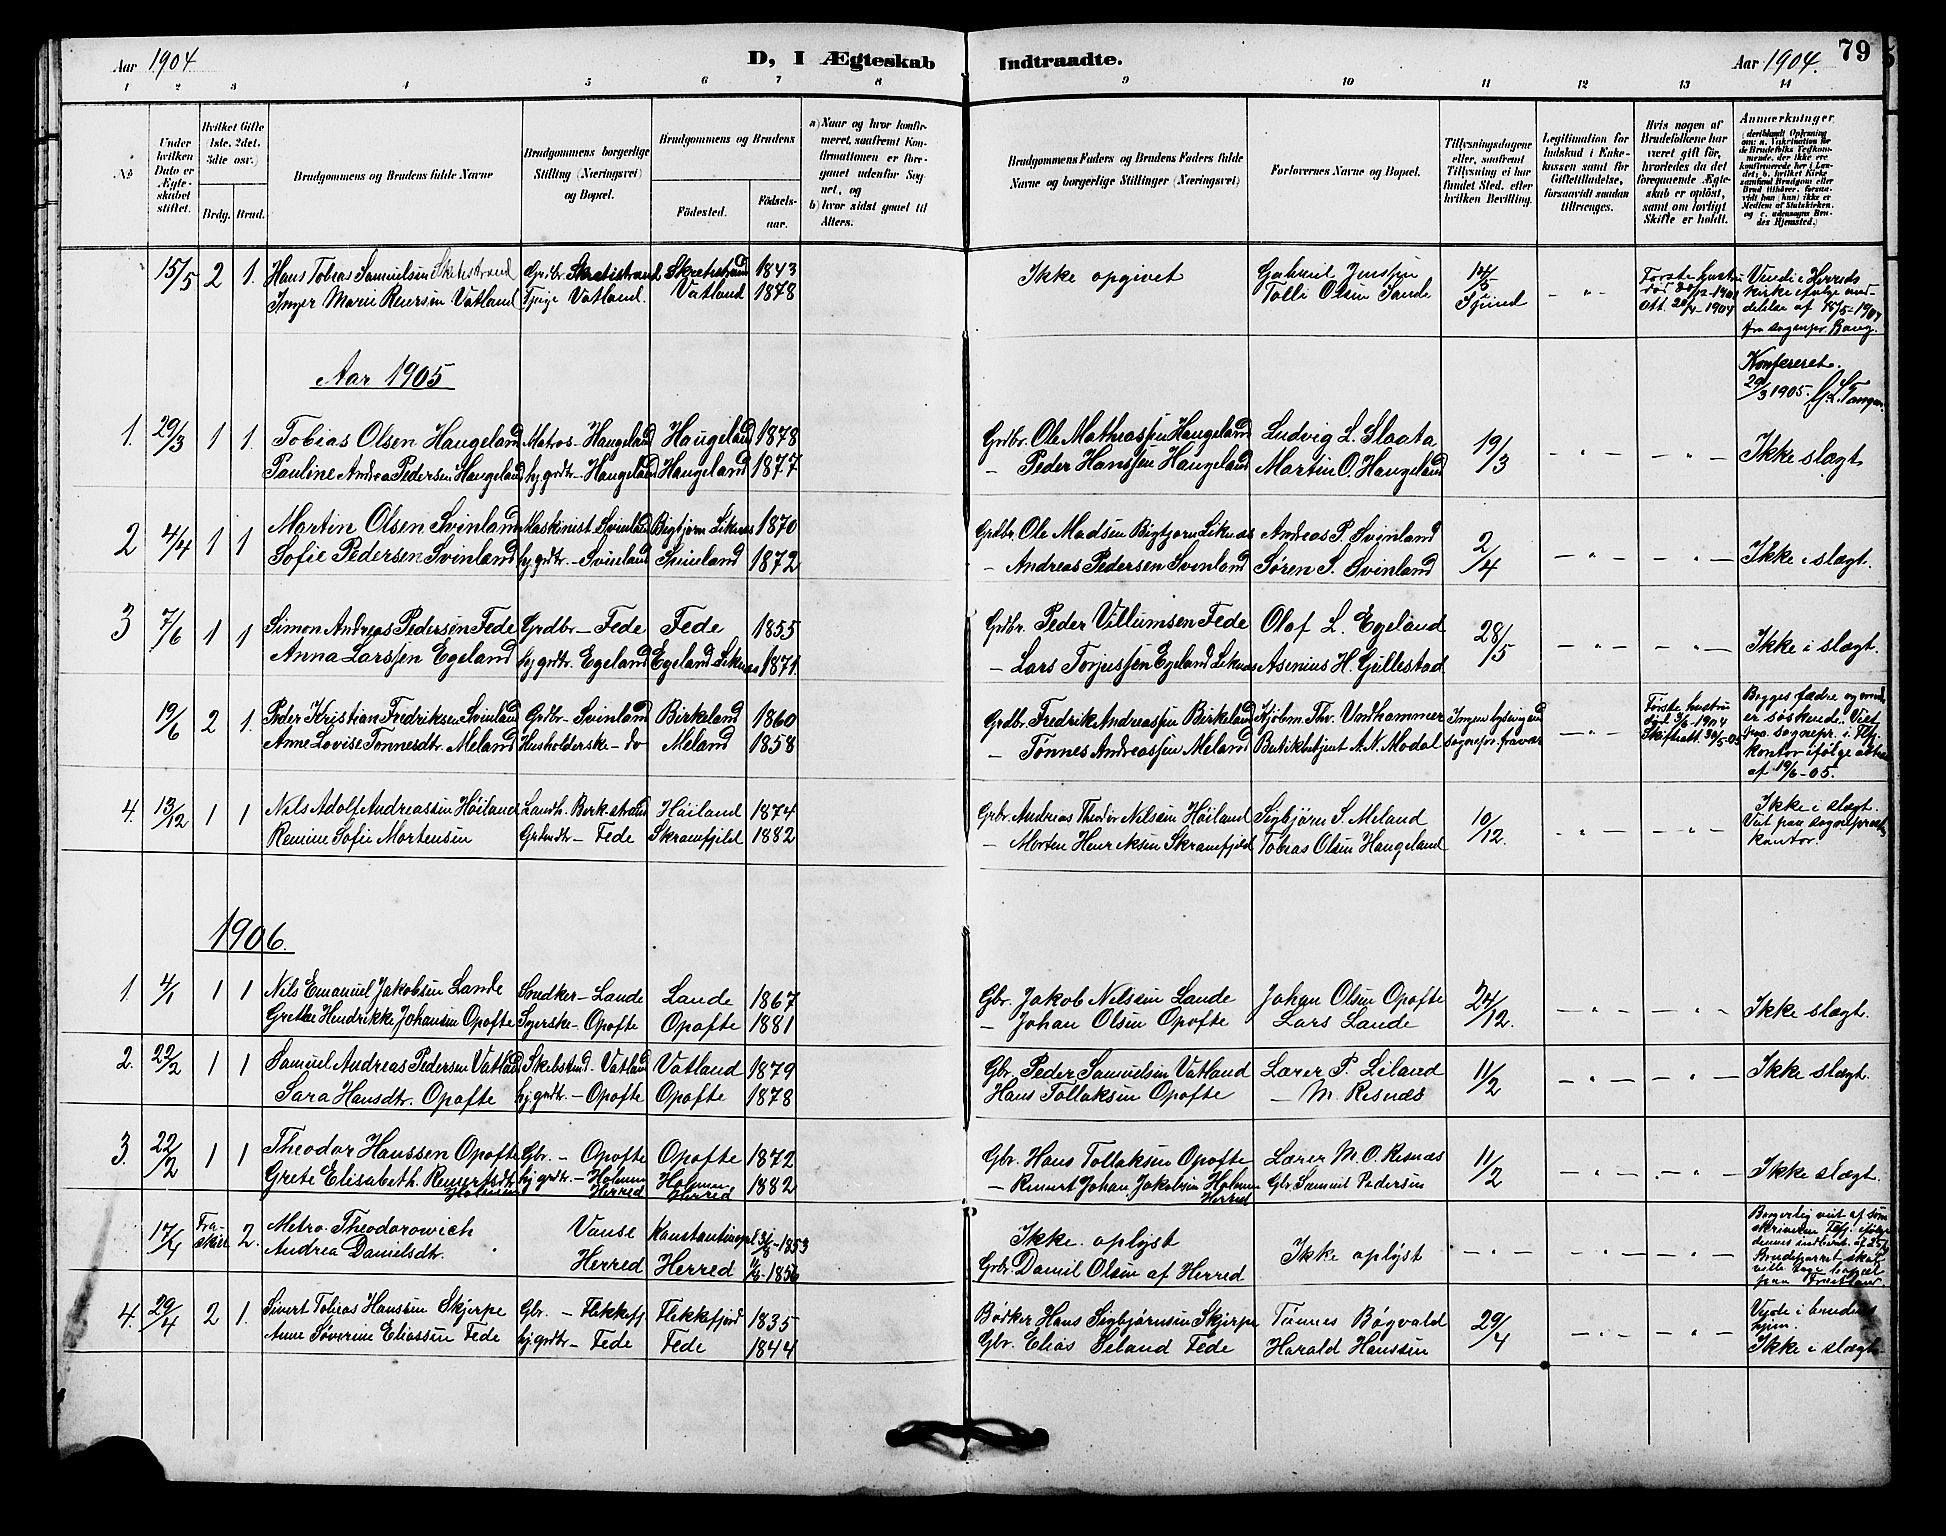 79
Aar 1904
D, I Ægteskab
Indtraadte.
Aar 1904.
1 2 3 4 5 6 7 8 9 10 11 12 13 14
No
Under hvilken Dato er Ægteskabet stiftet.
Hvilket Gifte 1ste, 2det, 3die osv.)
Brdg. Brud.
Brudgommens og Brudens fulde Navne
Brudgommens borgerlige Stilling (Næringsvei) og Bopæl.
Brudgommens og Brudens
Födested.
Födselsaar.
a) Naar og hvor konfirmeret, saafremt Konfirmationen er foregaaet udenfor Sognet, og
b) hvor sidst gaaet til Alters.
Brudgommens Faders og Brudens Faders fulde Navne og borgerlige Stillinger (Næringsvei)
Forlovernes Navne og Bopæl.
Tillysningsdagene eller, saafremt Tillysning ei har fundet Sted, efter hvilken Bevilling.
Legitimation for Indskud i Enkekassen samt for Giftetilladelse, forsaavidt saadan tiltrænges.
Hvis nogen af Brudefolkene har været gift för, hvorledes da det foregaaende Ægteskab er oplöst, samt om lovligt Skifte er holdt.
Anmærkninger
15/5 2 1. Hans Tobias Samuelsen Sketestrand Grdbr. Sketestrand Sketestrand 1843 Ikke opgivet Gabriel Jenssen 14/5 Første hustru
Inger Marie Reiersen Vatland Tjpige Vatland. Vatland 1878 Tolli Olsen Sande
Aar 1905
Konfereret. 29/3 1905.
1. 29/3 1 1. Tobias Olsen Haugeland Matros - Haugeland Haugeland 1878 Grdbr. Ole Mathiassen Haugeland Ludvig L. Slaata 19/3 - " - - " - Ikke slægt
Pauline Andrea Pedersen Haugeland hj. grdtr. - Haugeland Haugeland 1877 - Peder Hanssen Haugeland Martin O. Haugeland
2 4/4 1 1 Martin Olsen Svinland Maskinist. Svinland Bigtjørn Liknes 1870 Grdbr. Ole Madsen Bigtjørn Liknes Andreas P. Svinland 2/4 - " - - " - Ikke i slægt.
Sofie Pedersen Svinland hj. grdtr. - Svinland Svineland 1872 - Andreas Pedersen Svinland Søren S. Svinland
3 7/6 1 1 Simon Andreas Pedersen Fede Grdbr - Fede Fede 1855 Grdbr. Peder Villumsen Fede Olaf L. Egeland 28/5 - " - - " - Ikke i slægt.
Anna Larssen Egeland hj. grdtr. Egeland Egeland Liknes 1871 - Lars Torjussen Egeland Liknes Asenius H. Gullestad
19/6 2 1. Peder Kristian Fredriksen Svinland Grdbr - Svinland Birkeland 1860 Grdbr. Fredrik Andreassen Birkeland Kjøbm. Thv. Undhammer Ingen lysing end - " - Første hustru død 3/6-1904
Anne Lovise Tønnesdtr. Meland Husholderske - do Meland 1858 - Tønnes Andreassen Meland Butikbetjent A. N. Modal sognepr. fravær Skifteatt. 30/5-05
Begges fædre og er søskende. Viet sognepr. i Flf. kontor ifølge af 19/6-05.
4. 13/12 1 1 Nils Adolf Andreassen Høiland Landh. Berkestrand Høiland 1874 Grbr. Andreas Theodor Nilsen Høiland Sigbjørn S. Meland 10/12. - " - - " - Ikke i slægt.
Remine Sofie Mortensen Grdmdtr - Fede Skranefjeld 1882 - Morten Henriksen Skranefjeld Tobias Olsen Haugeland Viet paa sogneprest kontor.
1906.
1. 4/1 1 1 Nils Emanuel Jakobsen Lande Snedker - Lande Lande 1867 Gbr. Jakob Nilssen Lande Johan Olsen Opofte 24/12. - " - - " - Ikke slægt.
Grethe Hendrikke Johansen Opofte Syerske - Opofte Opofte 1881 - Johan Olsen Opofte Lars Lande
2. 22/2 1 1 Samuel Andreas Pedersen Vatland - Vatland Vatland 1879 Gbr. Peder Samuelsen Vatland Lærer P. Eiland 11/2 - " - - " - Ikke slægt.
Sara Hansdtr. Opofte hj. grdtr. - Opofte Opofte 1878 Hans Tollaksen Opofte - M. Resnæs
3. 22/2 1 1 Theodor Hanssen Opofte Gbr. - Opofte Opofte 1872 Gbr. Hans Tollaksen Opofte Lærer M. O. Resnæs 11/2 - " - Ikke slægt.
Grete Elisabeth Reinertsdtr. Holmen hj. grdtr. - Holmen Herred Holmen Herred 1882 - Reinert Johan Jakobsen Holmen Herred Gbr. Samuel Pedersen
17/4 Fraskilt 2. Metro Theodorowich Vanse Konstantinopel 1853 Ikke oplyst Ikke oplyst - " - - " - - " -
Andrea Danielsdtr. Herred Herred 1856 Grdbr. Daniel Olsen af Herred
4. 29/4 2 1. Sivert Tobias Hanssen Skjerpe Gbr. - Flekkefj. Flekkefjord 1835 Bødker Hans Sigbjørnsen Skjerpe Tønnes Bøgvald 29/4 - " - - " - Viede i brudens hjem.
Anne Severine Eliassen Fede hj. grdtr - Fede Fede 1844 Gbr. Elias Seland Fede Harald Hanssen Ikke i slægt.